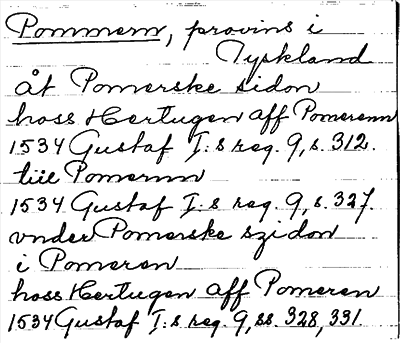 Pommern, provins i
Tyskland
åt Pomerske sidon
hoss Hertugen aff Pomerenn
1534 Gustaf I:s reg. 9, s. 312.
tiie Pomernn
1534 Gustaf I:s reg. 9, s. 327.
vnder Pomerske szidon
i Pomeren
hoss Hertugen aff Pomeren
1534 Gustaf I:s reg. 9, ss. 328, 331.